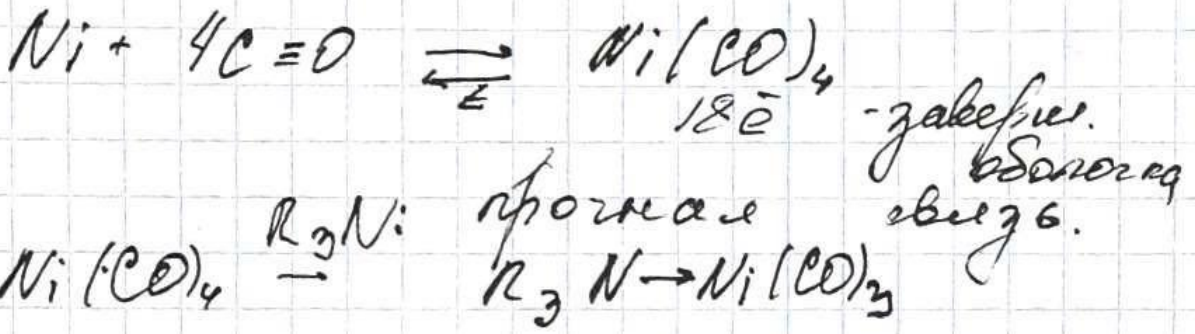 Ni + 4C≡O ⇄ Ni(CO)₄
t
18ē - заверш.
оболочка
R₃N: прочная связь.
Ni(CO)₄ → R₃N→Ni(CO)₃